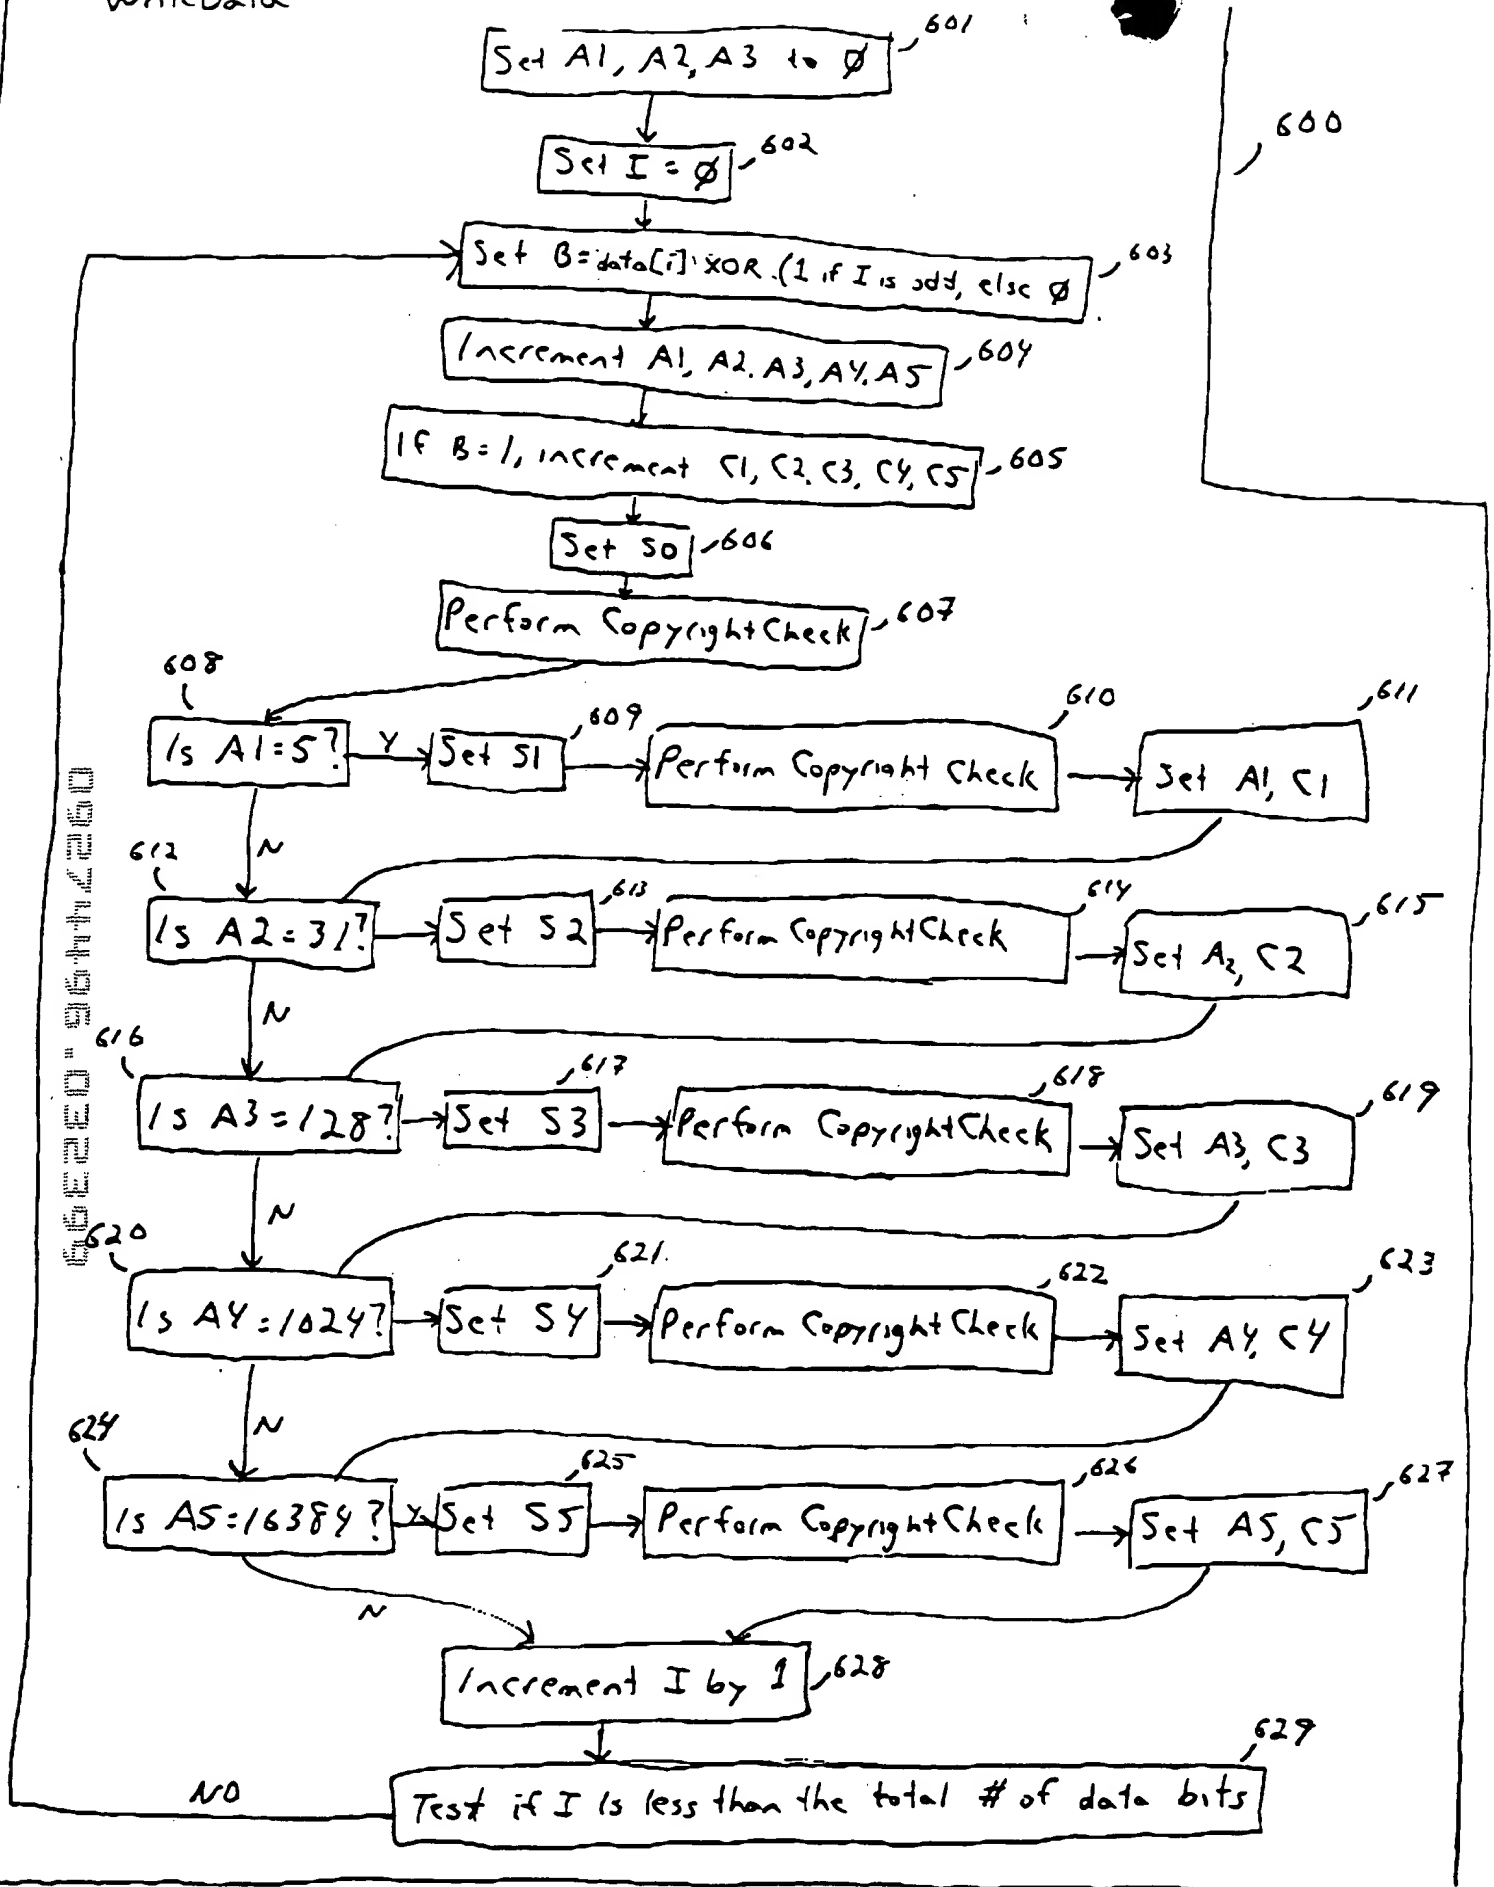 WriteData
Set A1, A2, A3 to Ø
601
600
Set I = Ø
602
Set B=data[i] XOR (1 if I is odd, else Ø
603
Increment A1, A2. A3, A4. A5
604
If B=1, increment C1, C2. C3, C4, C5
605
Set S0
606
Perform CopyrightCheck
607
608
Is A1=5?
Y
Set S1
609
Perform Copyright Check
610
Set A1, C1
611
N
612
Is A2=31?
Set S2
613
Perform CopyrightCheck
614
Set A2, C2
615
N
616
Is A3=128?
Set S3
617
Perform CopyrightCheck
618
Set A3, C3
619
N
620
Is A4=1024?
Set S4
621
Perform CopyrightCheck
622
Set A4, C4
623
N
624
Is A5=16384?
Y
Set S5
625
Perform CopyrightCheck
626
Set A5, C5
627
N
Increment I by 1
628
Test if I is less than the total # of data bits
629
NO
09274496.032399